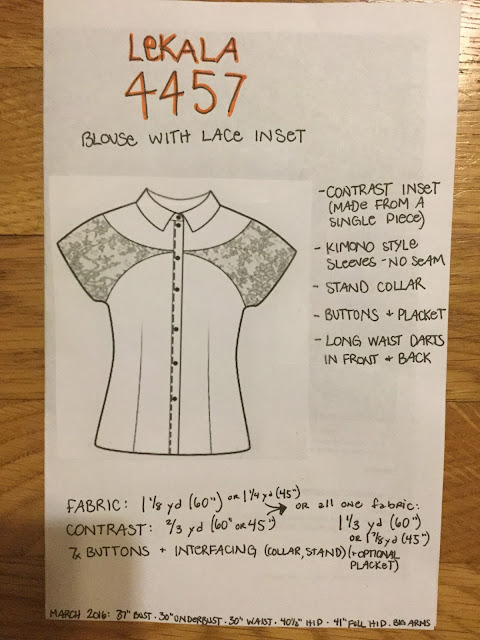 LeKALA
4457
BLOUSE WITH LACE INSET
- CONTRAST INSET
(MADE FROM A
SINGLE PIECE)
- KIMONO STYLE
SLEEVES - NO SEAM
- STAND COLLAR
- BUTTONS + PLACKET
- LONG WAIST DARTS
IN FRONT + BACK
FABRIC: 1 1/8 yd (60") or 1 1/4 yd (45")
or all one fabric:
CONTRAST: 2/3 yd (60" or 45")
1 1/3 yd (60")
or 1 7/8 yd (45")
7x BUTTONS + INTERFACING (COLLAR, STAND) (+OPTIONAL
PLACKET)
MARCH 2016: 37" BUST · 30" UNDERBUST · 30" WAIST · 40 1/2" HIP · 41" FULL HIP · BIG ARMS